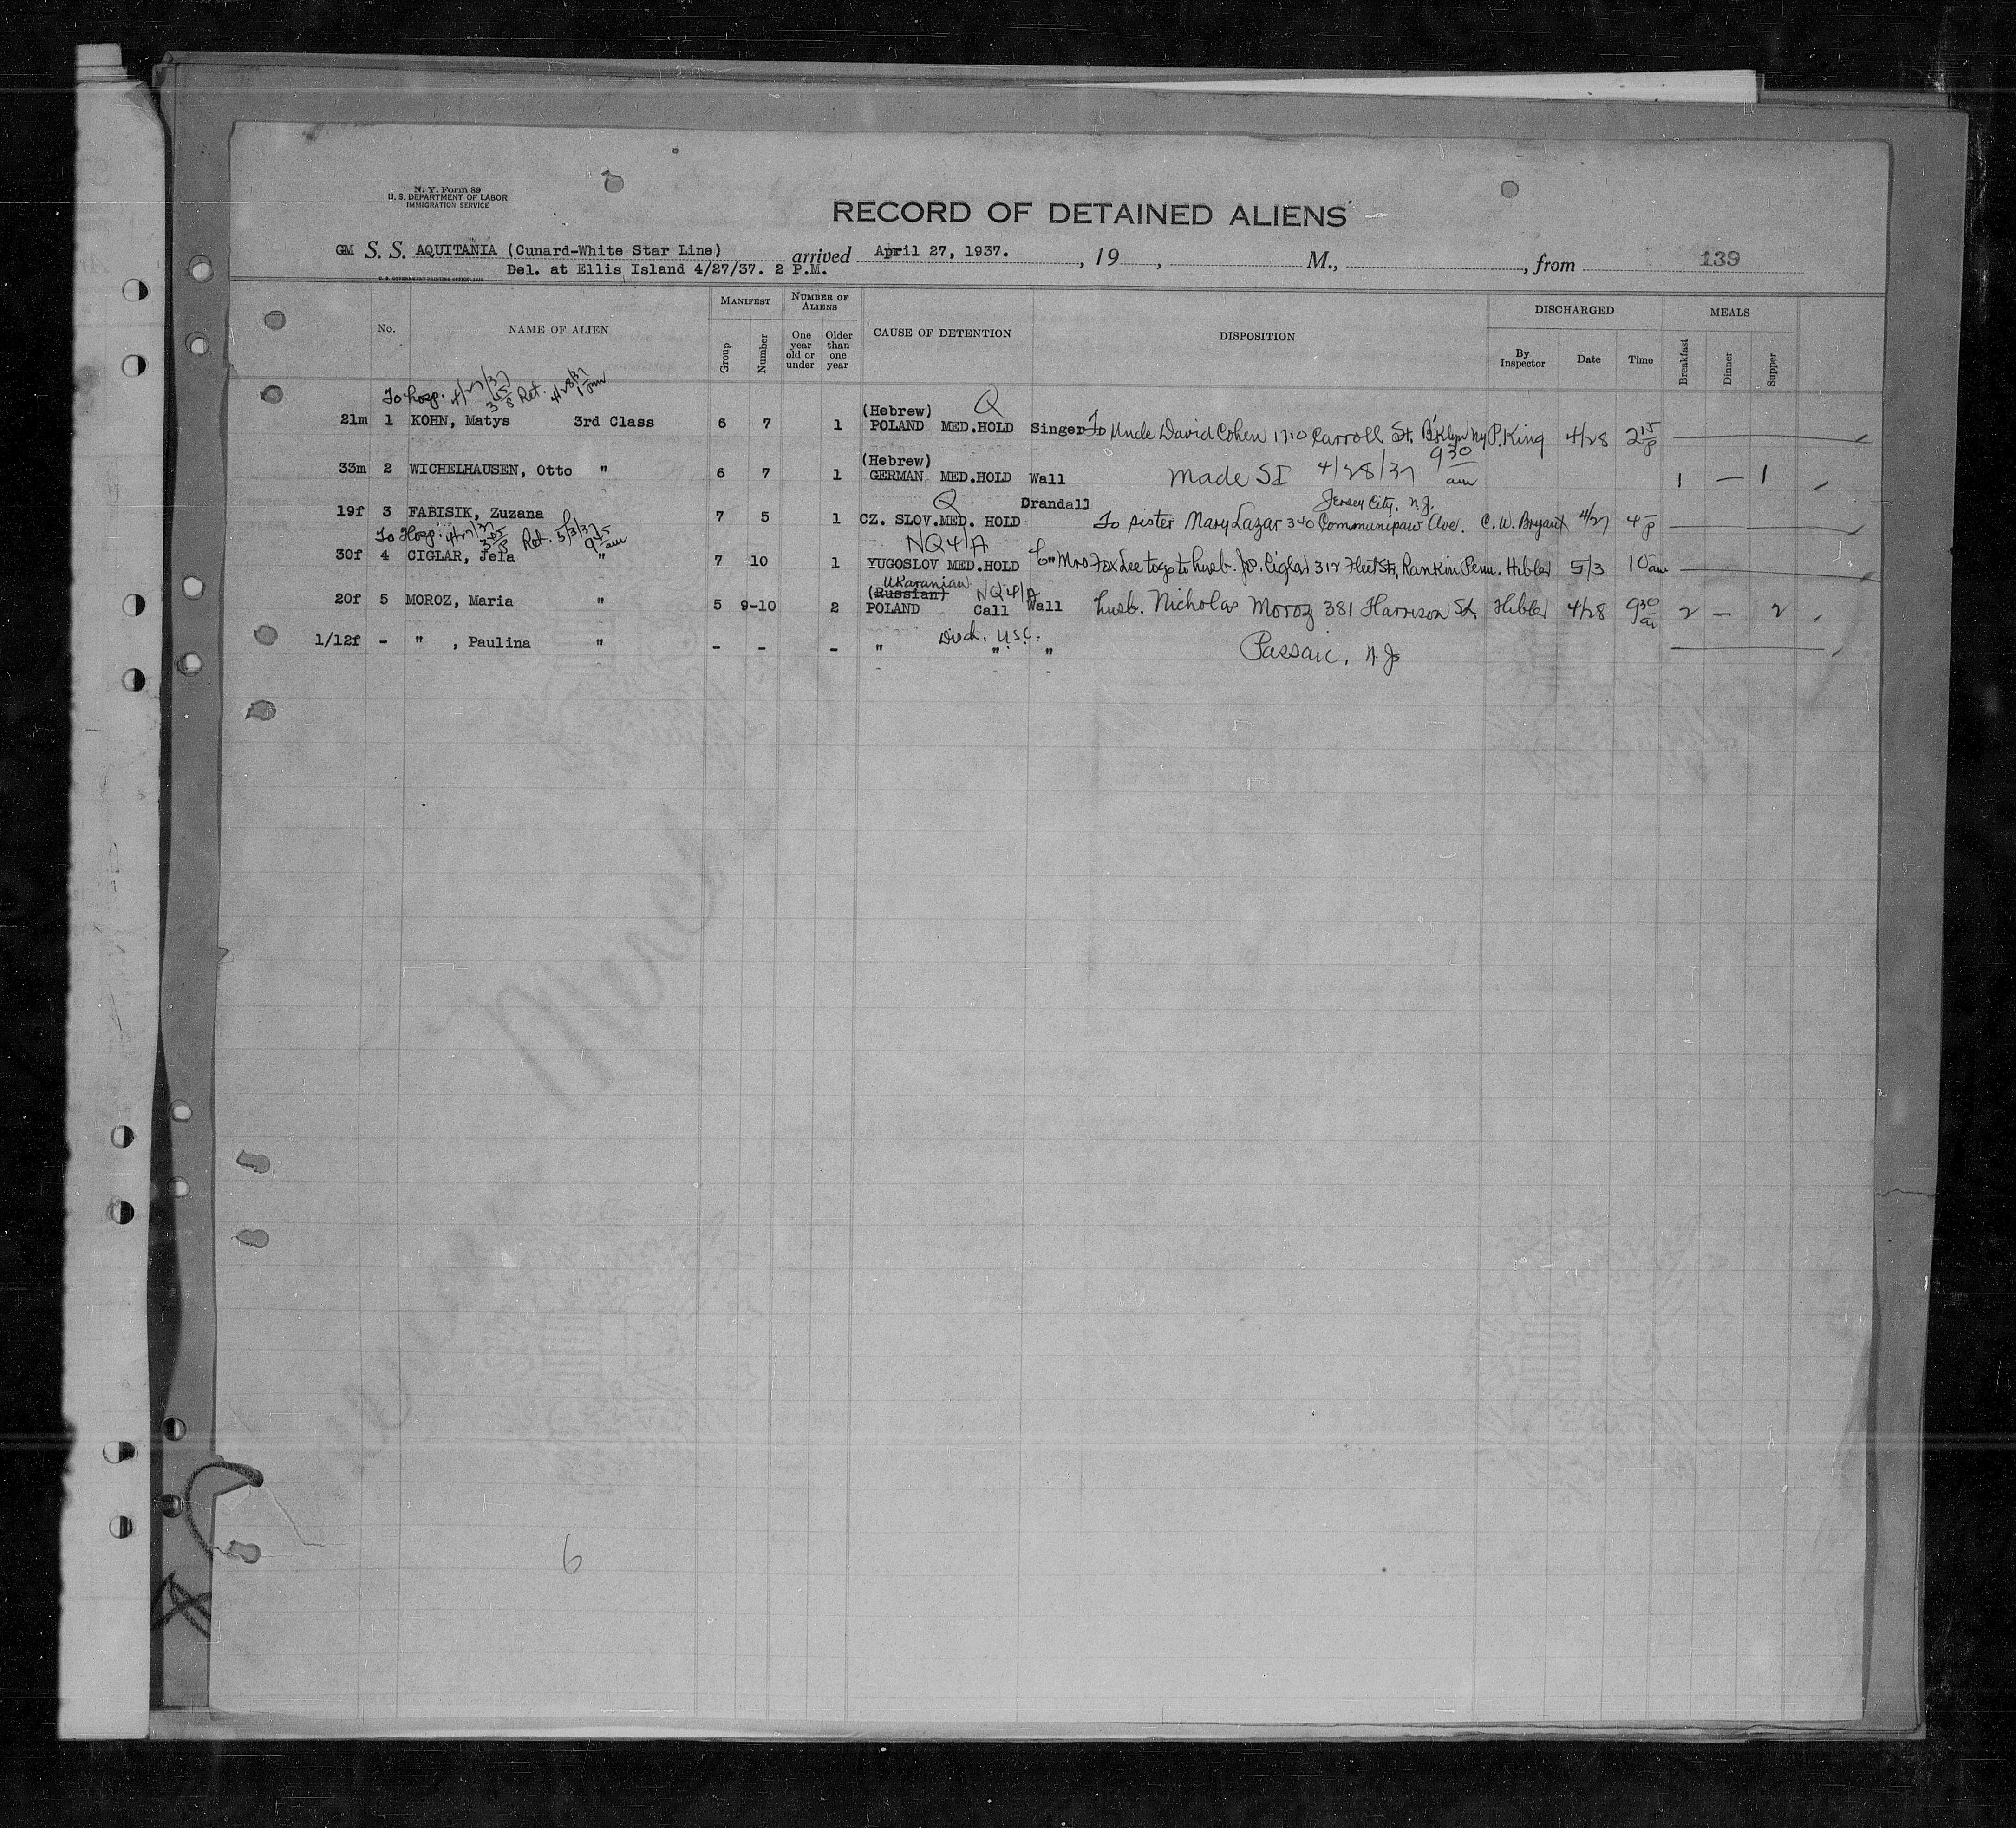 N. Y. Form 89
U. S. DEPARTMENT OF LABOR
IMMIGRATION SERVICE
RECORD OF DETAINED ALIENS
GM S. S. AQUITANIA (Cunard-White Star Line) arrived April 27, 1937. , 19 , M., , from 139
Del. at Ellis Island 4/27/37. 2 P.M.
No. NAME OF ALIEN MANIFEST Group Number NUMBER OF ALIENS One year old or under Older than one year CAUSE OF DETENTION DISPOSITION DISCHARGED By Inspector Date Time MEALS Breakfast Dinner Supper
To hosp. 4/27/37 Ret. 4/28/37
(Hebrew) Q
21m 1 KOHN, Matys 3rd Class 6 7 1 POLAND MED.HOLD Singer To Uncle David Cohen 1710 Carroll St. B'klyn NY P. King 4/28 2 15 P
(Hebrew)
33m 2 WICHELHAUSEN, Otto " 6 7 1 GERMAN MED.HOLD Wall Made SI 4/28/37 9 30 am 1 — 1
Q Drandall Jersey City, N.J.
19f 3 FABISIK, Zuzana 7 5 1 CZ. SLOV. MED. HOLD To sister Mary Lazar 340 Communipaw Ave. C. W. Bryant 4/27 4 P
To Hosp. 4/27/37 Ret. 5/3/37 9 15 am
NQ41A
30f 4 CIGLAR, Jela " 7 10 1 YUGOSLOV MED.HOLD " Mrs Fox See to go to husb. Ciglar 312 Fleet St, Rankin Penn. Hibler 5/3 10 am
Ukaranian
(Russian) NQ41A
20f 5 MOROZ, Maria " 5 9-10 2 POLAND Call Wall husb. Nicholas Moroz 381 Harrison St. Hibler 4/28 9 30 2 — 2
Disch. U.S.C.
1/12f - " , Paulina " - - - " " " Passaic, N.J.
6